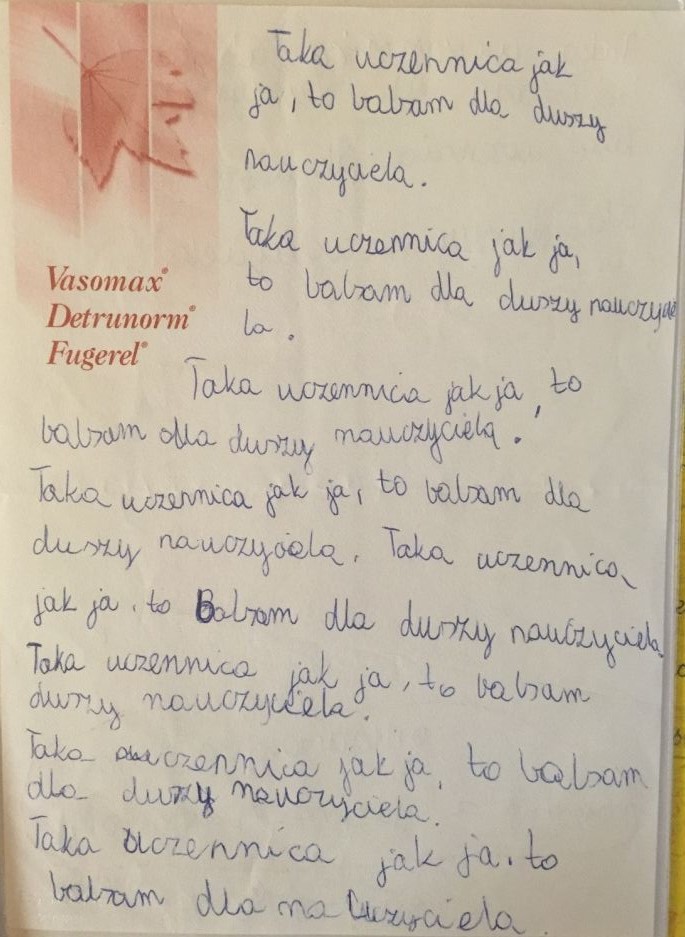 Taka uczennica jak
ja, to balsam dla duszy
nauczyciela.
Taka uczennica jak ja,
to balsam dla duszy nauczycie
la.
Vasomax®
Detrunorm®
Fugerel®
Taka uczennica jak ja, to
balsam dla duszy nauczyciela.
Taka uczennica jak ja, to balsam dla
duszy nauczyciela. Taka uczennica
jak ja, to Balsam dla duszy nauczyciela.
Taka uczennica jak ja, to balsam
duszy nauczyciela.
Taka uczennica jak ja, to balsam
dla duszy nauczyciela.
Taka uczennica jak ja, to
balsam dla nauczyciela.